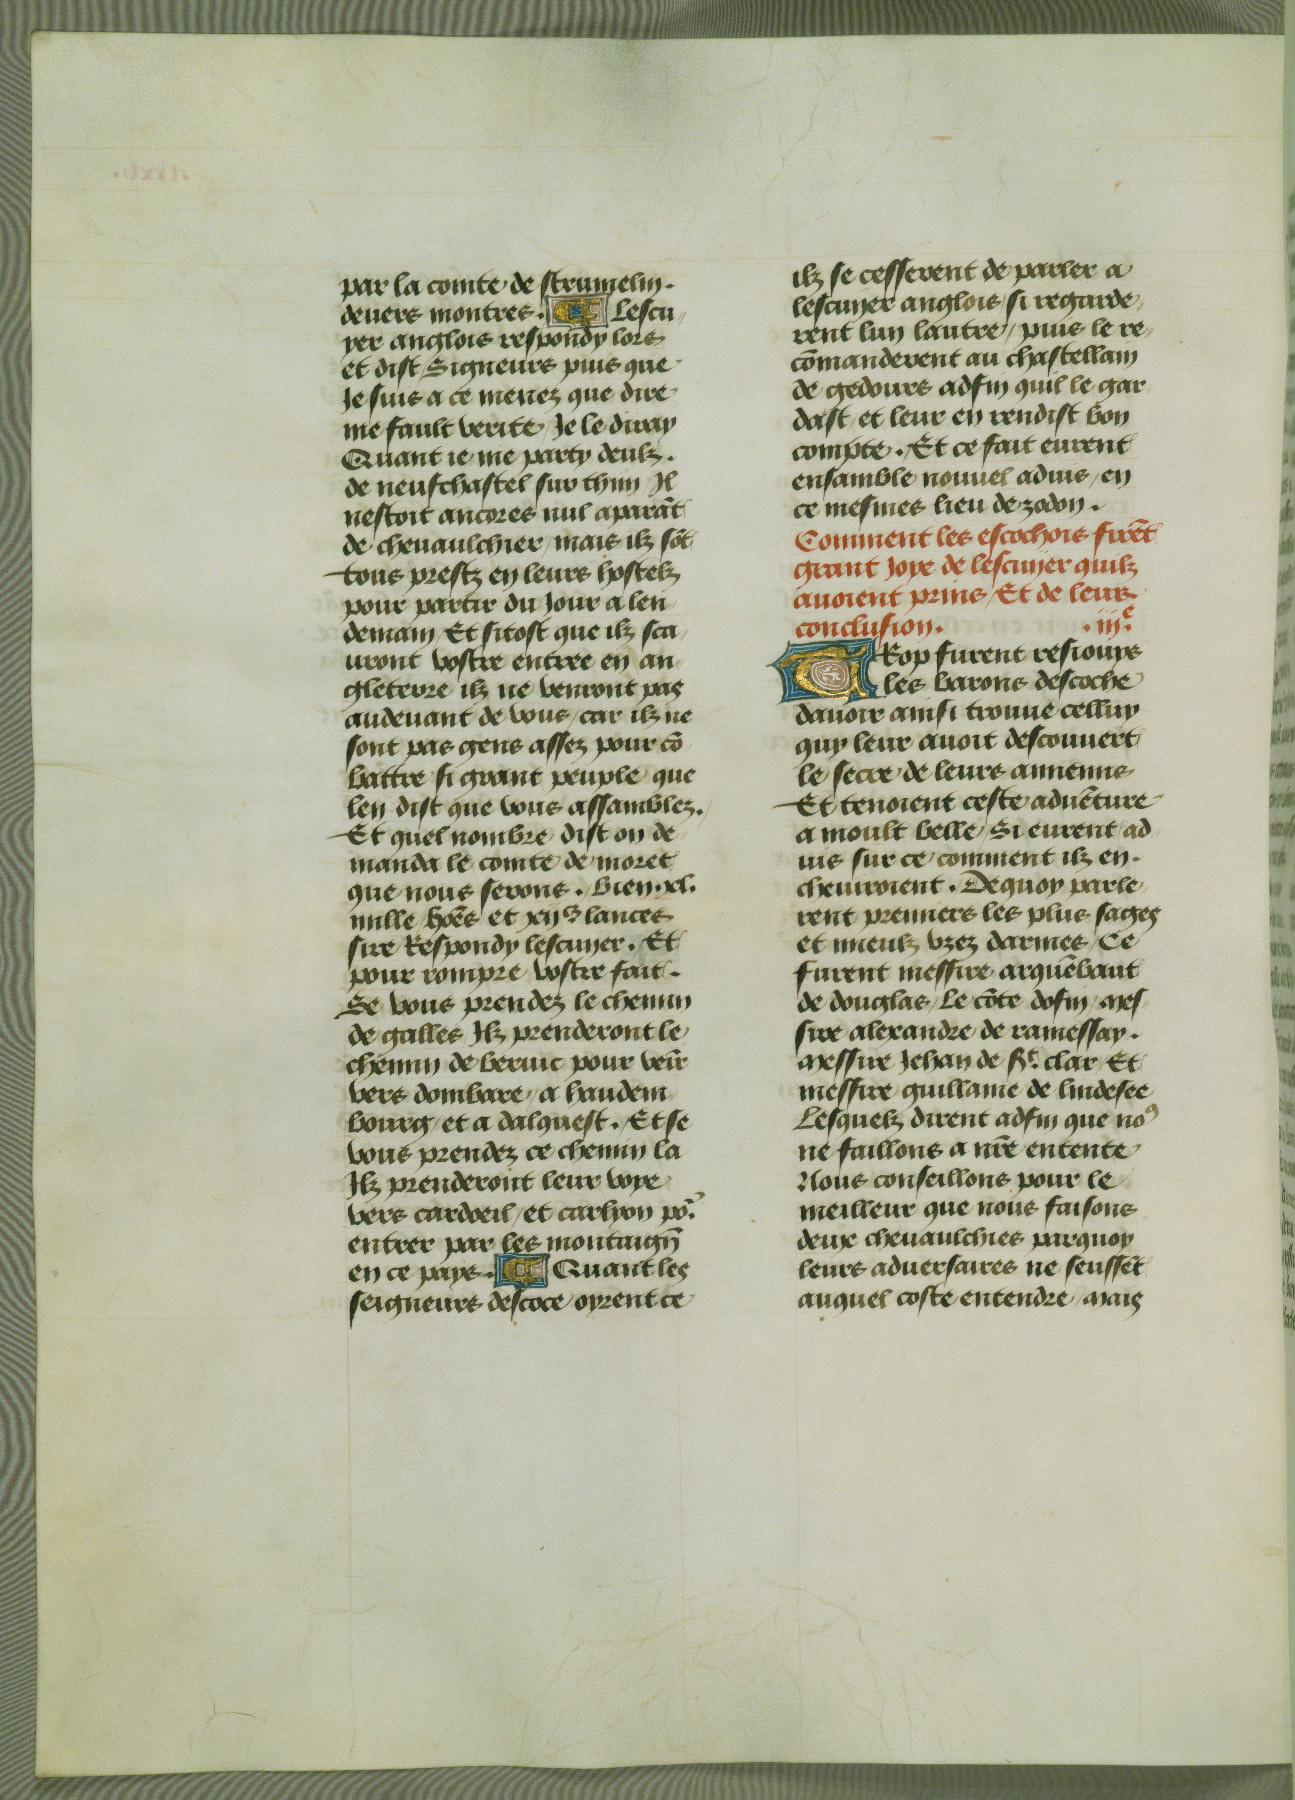 par la comte de strumelin.
deuers montres. Lescu,,
yer anglois respondy lors
et dist Signeurs puis que
Je suis a ce menez que dire
me fault verite / Je le diray
Quant ie me party deulz.
de neufchastel sur thin Jl
nestoit ancores nul aparāt
de cheuaulchier / mais ilz sōt
tous prestz en leurs hostelz
pour partir du Jour a len
demain / Et sitost que ilz sca,
uront vostre entree en an,
gleterre ilz ne venront pas
audeuant de vous / car ilz ne
sont pas gens assez pour cō
battre si grant peuple que
len dist que vous assamblez.
Et quel nombre dist on de,
manda le comte de moret
que nous serons. Bien .xl.
mille hōes et xijᶜ lances
sire Respondy lescuyer. Et
pour rompre vostre fait.
Se vous prendez le chemin
de galles Jlz prenderont le
chemin de beruic pour venīr
vers dombare / a haudem
bourg / et a dalquest. Et se
vous prendez ce chemin la
Jlz prenderont leur voye
vers cardoeil / et carlyon po᷑.
entrer par les montaign̄
en ce pays. Quant les
seigneurs descoce oyrent ce
ilz se cesserent de parler a
lescuyer anglois / si regarde,,
rent lun lautre // puis le re,,
cōmanderent au chastellain
de gedours adfin quil le gar
dast et leur en rendist bon
compte. Et ce fait eurent
ensamble nouuel aduis / en
ce mesmes lieu de zodon.
Comment les escochois firēt
grant Joye de lescuyer quilz
auoient prins / Et de leur
conclusion. .iijᵉ.
TRop furent resiouys
les barons descoche
dauoir ainsi trouue celluy
quy leur auoit descouuert
le secre de leurs annemis
Et tenoient ceste aduēture
a moult belle / Si eurent ad
uis sur ce comment ilz en.
cheuiroient. Dequoy parle,
rent premiers les plus sages
et mieulz vzez darmes / Ce
furent messire arquēbaut
de douglas / Le cōte dofin / mes
sire alexandre de ramessay.
messire Jehan de Sᵗ. clar / Et
messire guillame de lindesee
Lesquelz dirent adfin que noꝰ
ne faillons a nr̄e entente
Nous conseillons pour le
meilleur que nous faisons
deux cheuaulchies parquoy
leurs aduersaires ne seussēt
auquel coste entendre / mais